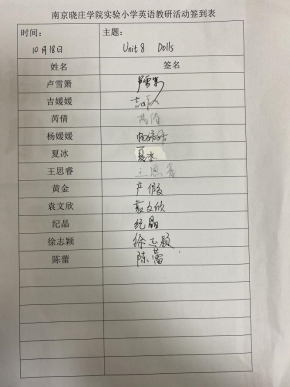 南京晓庄学院实验小学英语教研活动签到表
时间： 主题：
10月18日 Unit 8 Dolls
姓名 签名
卢雪箫
吉媛媛
芮倩 芮倩
杨媛媛 杨媛媛
夏冰 夏冰
王思睿 王思睿
黄金 产假
袁文欣 袁文欣
纪晶 纪晶
徐志颖 徐志颖
陈蕾 陈蕾